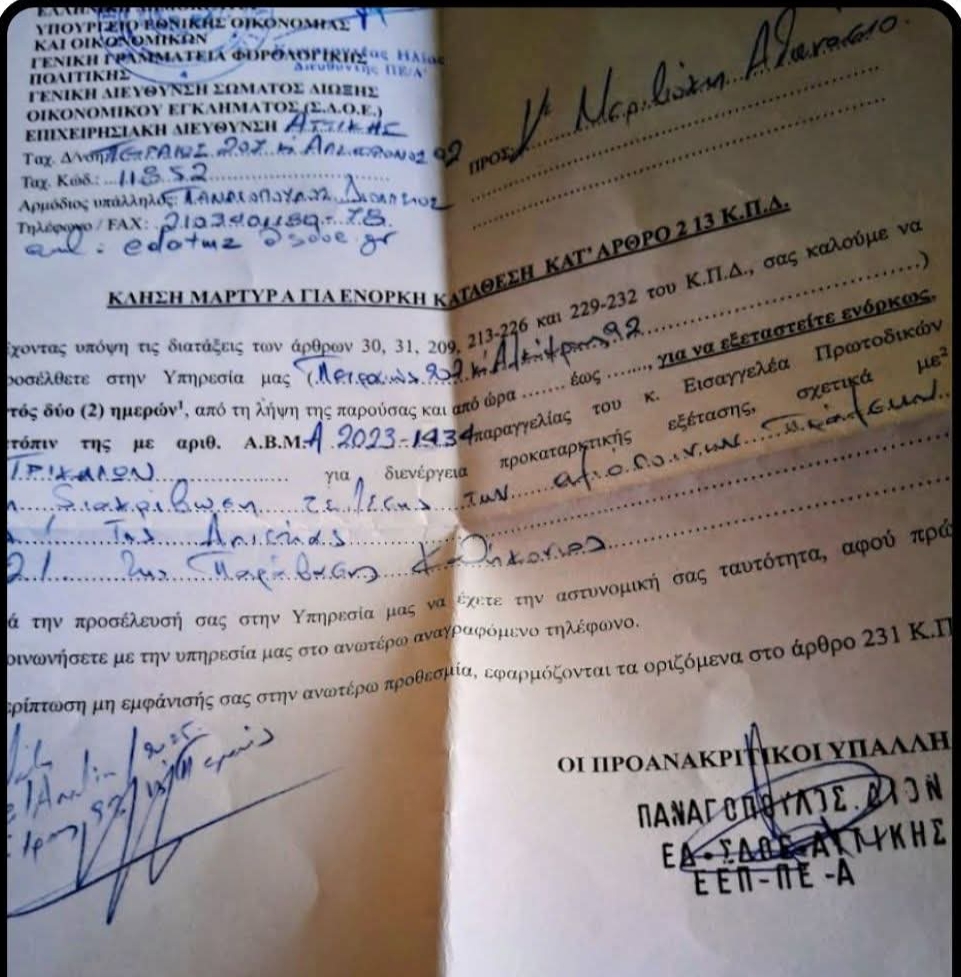 ΕΛΛΗΝΙΚΗ ΔΗΜΟΚΡΑΤΙΑ
ΥΠΟΥΡΓΕΙΟ ΕΘΝΙΚΗΣ ΟΙΚΟΝΟΜΙΑΣ
ΚΑΙ ΟΙΚΟΝΟΜΙΚΩΝ
ΓΕΝΙΚΗ ΓΡΑΜΜΑΤΕΙΑ ΦΟΡΟΛΟΓΙΚΗΣ
ΠΟΛΙΤΙΚΗΣ
Διευθυντής ΠΕ/Α'
ΓΕΝΙΚΗ ΔΙΕΥΘΥΝΣΗ ΣΩΜΑΤΟΣ ΔΙΩΞΗΣ
ΟΙΚΟΝΟΜΙΚΟΥ ΕΓΚΛΗΜΑΤΟΣ (Σ.Δ.Ο.Ε.)
ΕΠΙΧΕΙΡΗΣΙΑΚΗ ΔΙΕΥΘΥΝΣΗ ΑΤΤΙΚΗΣ
Ταχ. Δ/νση ΠΕΙΡΑΙΩΣ 207 κ ΑΛΚΙΦΡΟΝΟΣ 92
Ταχ. Κώδ.: 11852
Αρμόδιος υπάλληλος: ΠΑΝΑΓΟΠΟΥΛΟΣ ΔΙΟΝΥΣΙΟΣ
Τηλέφωνο / FAX: 2103401189 - 78
ΠΡΟΣ: Αθανάσιο
ΚΛΗΣΗ ΜΑΡΤΥΡΑ ΓΙΑ ΕΝΟΡΚΗ ΚΑΤΑΘΕΣΗ ΚΑΤ' ΑΡΘΡΟ 213 Κ.Π.Δ.
χοντας υπόψη τις διατάξεις των άρθρων 30, 31, 209, 213-226 και 229-232 του Κ.Π.Δ., σας καλούμε να
οσέλθετε στην Υπηρεσία μας (Πειραιώς 207 κ Αλκίφρονος 92 )
τός δύο (2) ημερών¹, από τη λήψη της παρούσας και από ώρα ....... έως ......., για να εξεταστείτε ενόρκως,
τόπιν της με αριθ. Α.Β.Μ. Α 2023-1434 παραγγελίας του κ. Εισαγγελέα Πρωτοδικών
ΤΡΙΚΑΛΩΝ για διενέργεια προκαταρκτικής εξέτασης, σχετικά με²
διακρίβωση τέλεσης των αξιοποίνων πράξεων
1/ Της Απιστίας
2/ Της Παράβασης Καθήκοντος
ά την προσέλευσή σας στην Υπηρεσία μας να έχετε την αστυνομική σας ταυτότητα, αφού πρώ
οινωνήσετε με την υπηρεσία μας στο ανωτέρω αναγραφόμενο τηλέφωνο.
ρίπτωση μη εμφάνισής σας στην ανωτέρω προθεσμία, εφαρμόζονται τα οριζόμενα στο άρθρο 231 Κ.Π
ΟΙ ΠΡΟΑΝΑΚΡΙΤΙΚΟΙ ΥΠΑΛΛΗ
ΠΑΝΑΓΟΠΟΥΛΟΣ ΔΙΟΝ
ΕΔ-ΣΔΟΕ-ΑΤΤΙΚΗΣ
ΕΕΠ-ΠΕ-Α